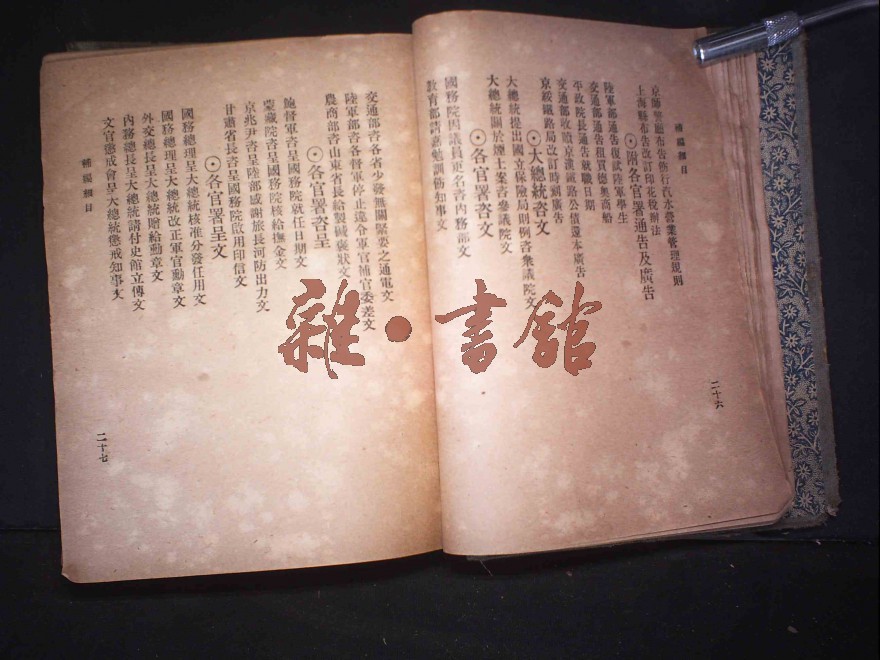 補編細目
京師警廳布告施行汽水營業管理規則
上海縣布告改訂印花稅辦法
⊙附各官署通告及廣告
陸軍部通告復隊陸軍學生
交通部通告租賃德奧商船
平政院長通告就職日期
交通部收贖京漢鐵路公債還本廣告
京綏鐵路局改訂時刻廣告
⊙大總統咨文
大總統提出國立保險局則例咨衆議院文
大總統關於煙土案咨參議院文
⊙各官署咨文
國務院因議員更名咨內務部文
教育部請嘉勉訓飭知事文
二十六
交通部咨各省少發無關緊要之通電文
陸軍部咨各督軍停止違令軍官補官委差文
農商部咨山東省長給製褒狀文
⊙各官署咨呈
鮑督軍咨呈國務院就任日期文
蒙藏院咨呈國務院核給撫金文
京兆尹咨呈陸部感謝旅長河防出力文
甘肅省長咨呈國務院啟用印信文
⊙各官署呈文
國務總理呈大總統核准分發任用文
國務總理呈大總統改正軍官勳章文
外交總長呈大總統贈給勳章文
內務總長呈大總統請付史館立傳文
文官懲戒會呈大總統懲戒知事文
補編細目
二十七
雜·書館